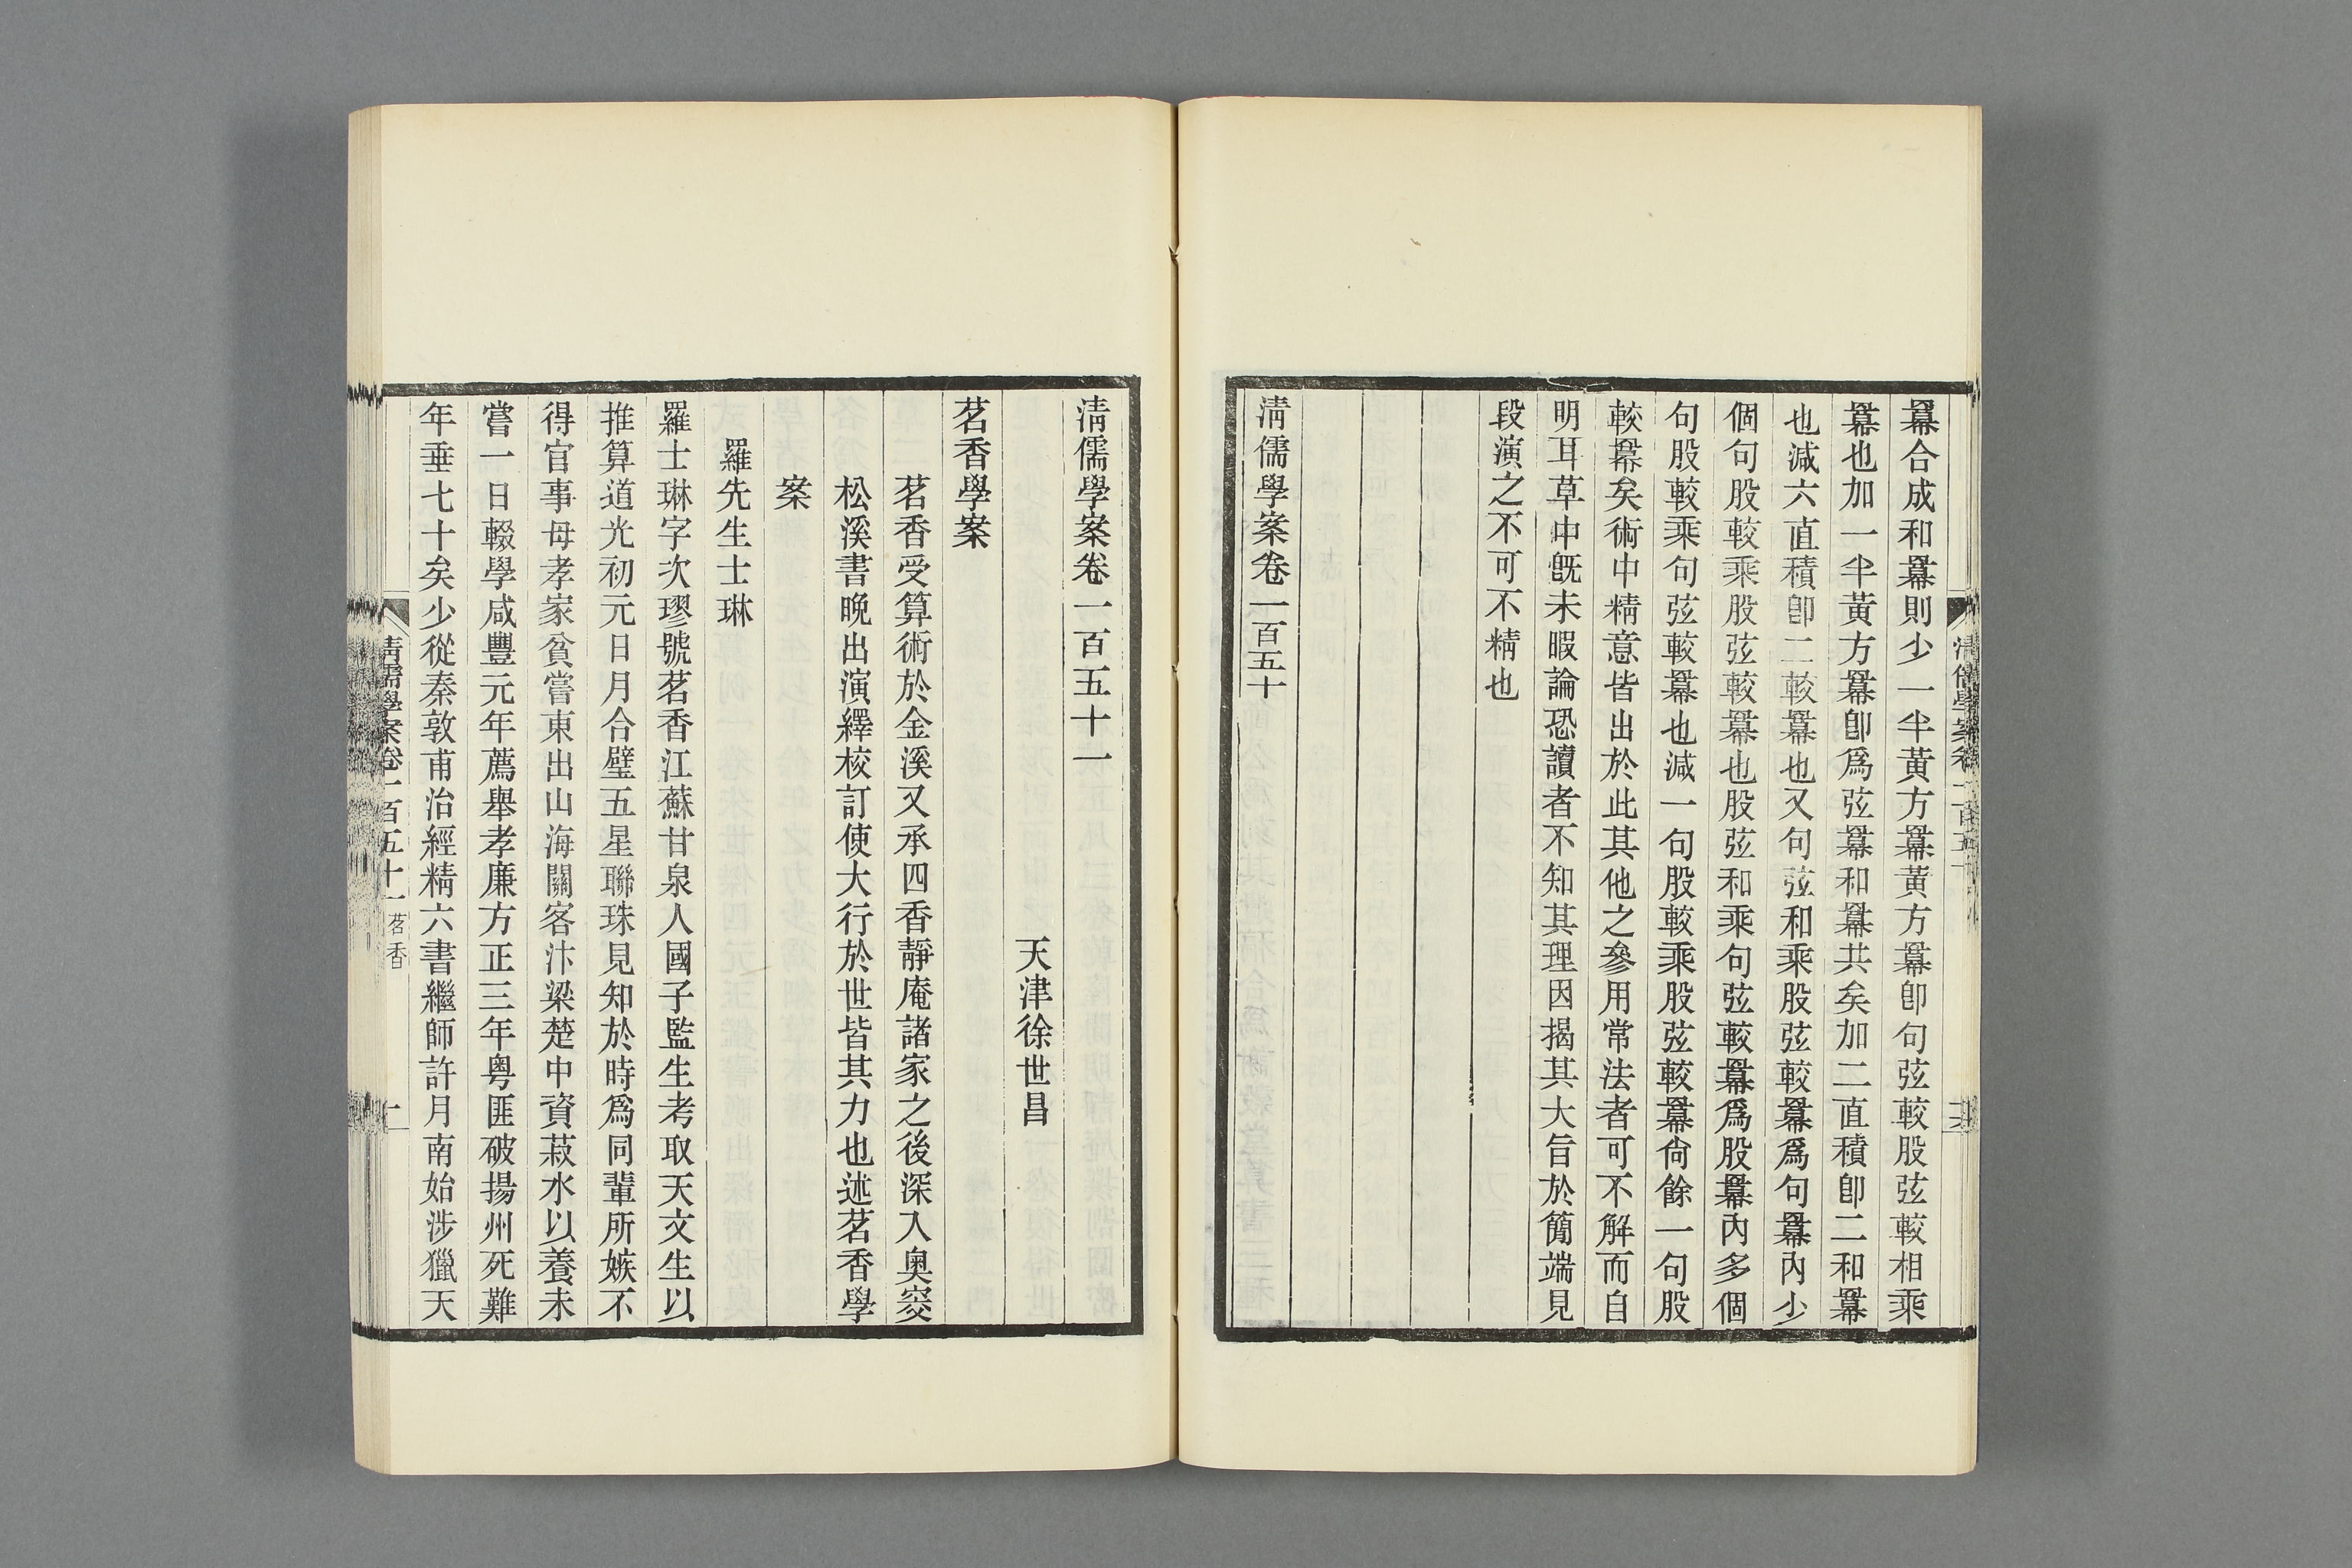 羃合成和羃則少一半黃方羃黃方羃卽句弦較股弦較相乘
羃也加一半黃方羃卽爲弦羃和羃共矣加二直積卽二和羃
也減六直積卽二較羃也又句弦和乘股弦較羃爲句羃內少
個句股較乘股弦較羃也股弦和乘句弦較羃爲股羃內多個
句股較乘句弦較羃也減一句股較乘股弦較羃尙餘一句股
較羃矣術中精意皆出於此其他之參用常法者可不解而自
明耳草中旣未暇論恐讀者不知其理因揭其大旨於簡端見
段演之不可不精也
淸儒學案卷一百五十
淸儒學案卷一百五十一
天津徐世昌
茗香學案
茗香受算術於金溪又承四香靜庵諸家之後深入奧窔
松溪書晚出演繹校訂使大行於世皆其力也述茗香學
案
羅先生士琳
羅士琳字次璆號茗香江蘇甘泉人國子監生考取天文生以
推算道光初元日月合璧五星聯珠見知於時爲同輩所嫉不
得官事母孝家貧嘗東出山海關客汴梁楚中資菽水以養未
嘗一日輟學咸豐元年薦舉孝廉方正三年粵匪破揚州死難
年垂七十矣少從秦敦甫治經精六書繼師許月南始涉獵天
淸儒學案卷一百五十一 茗香